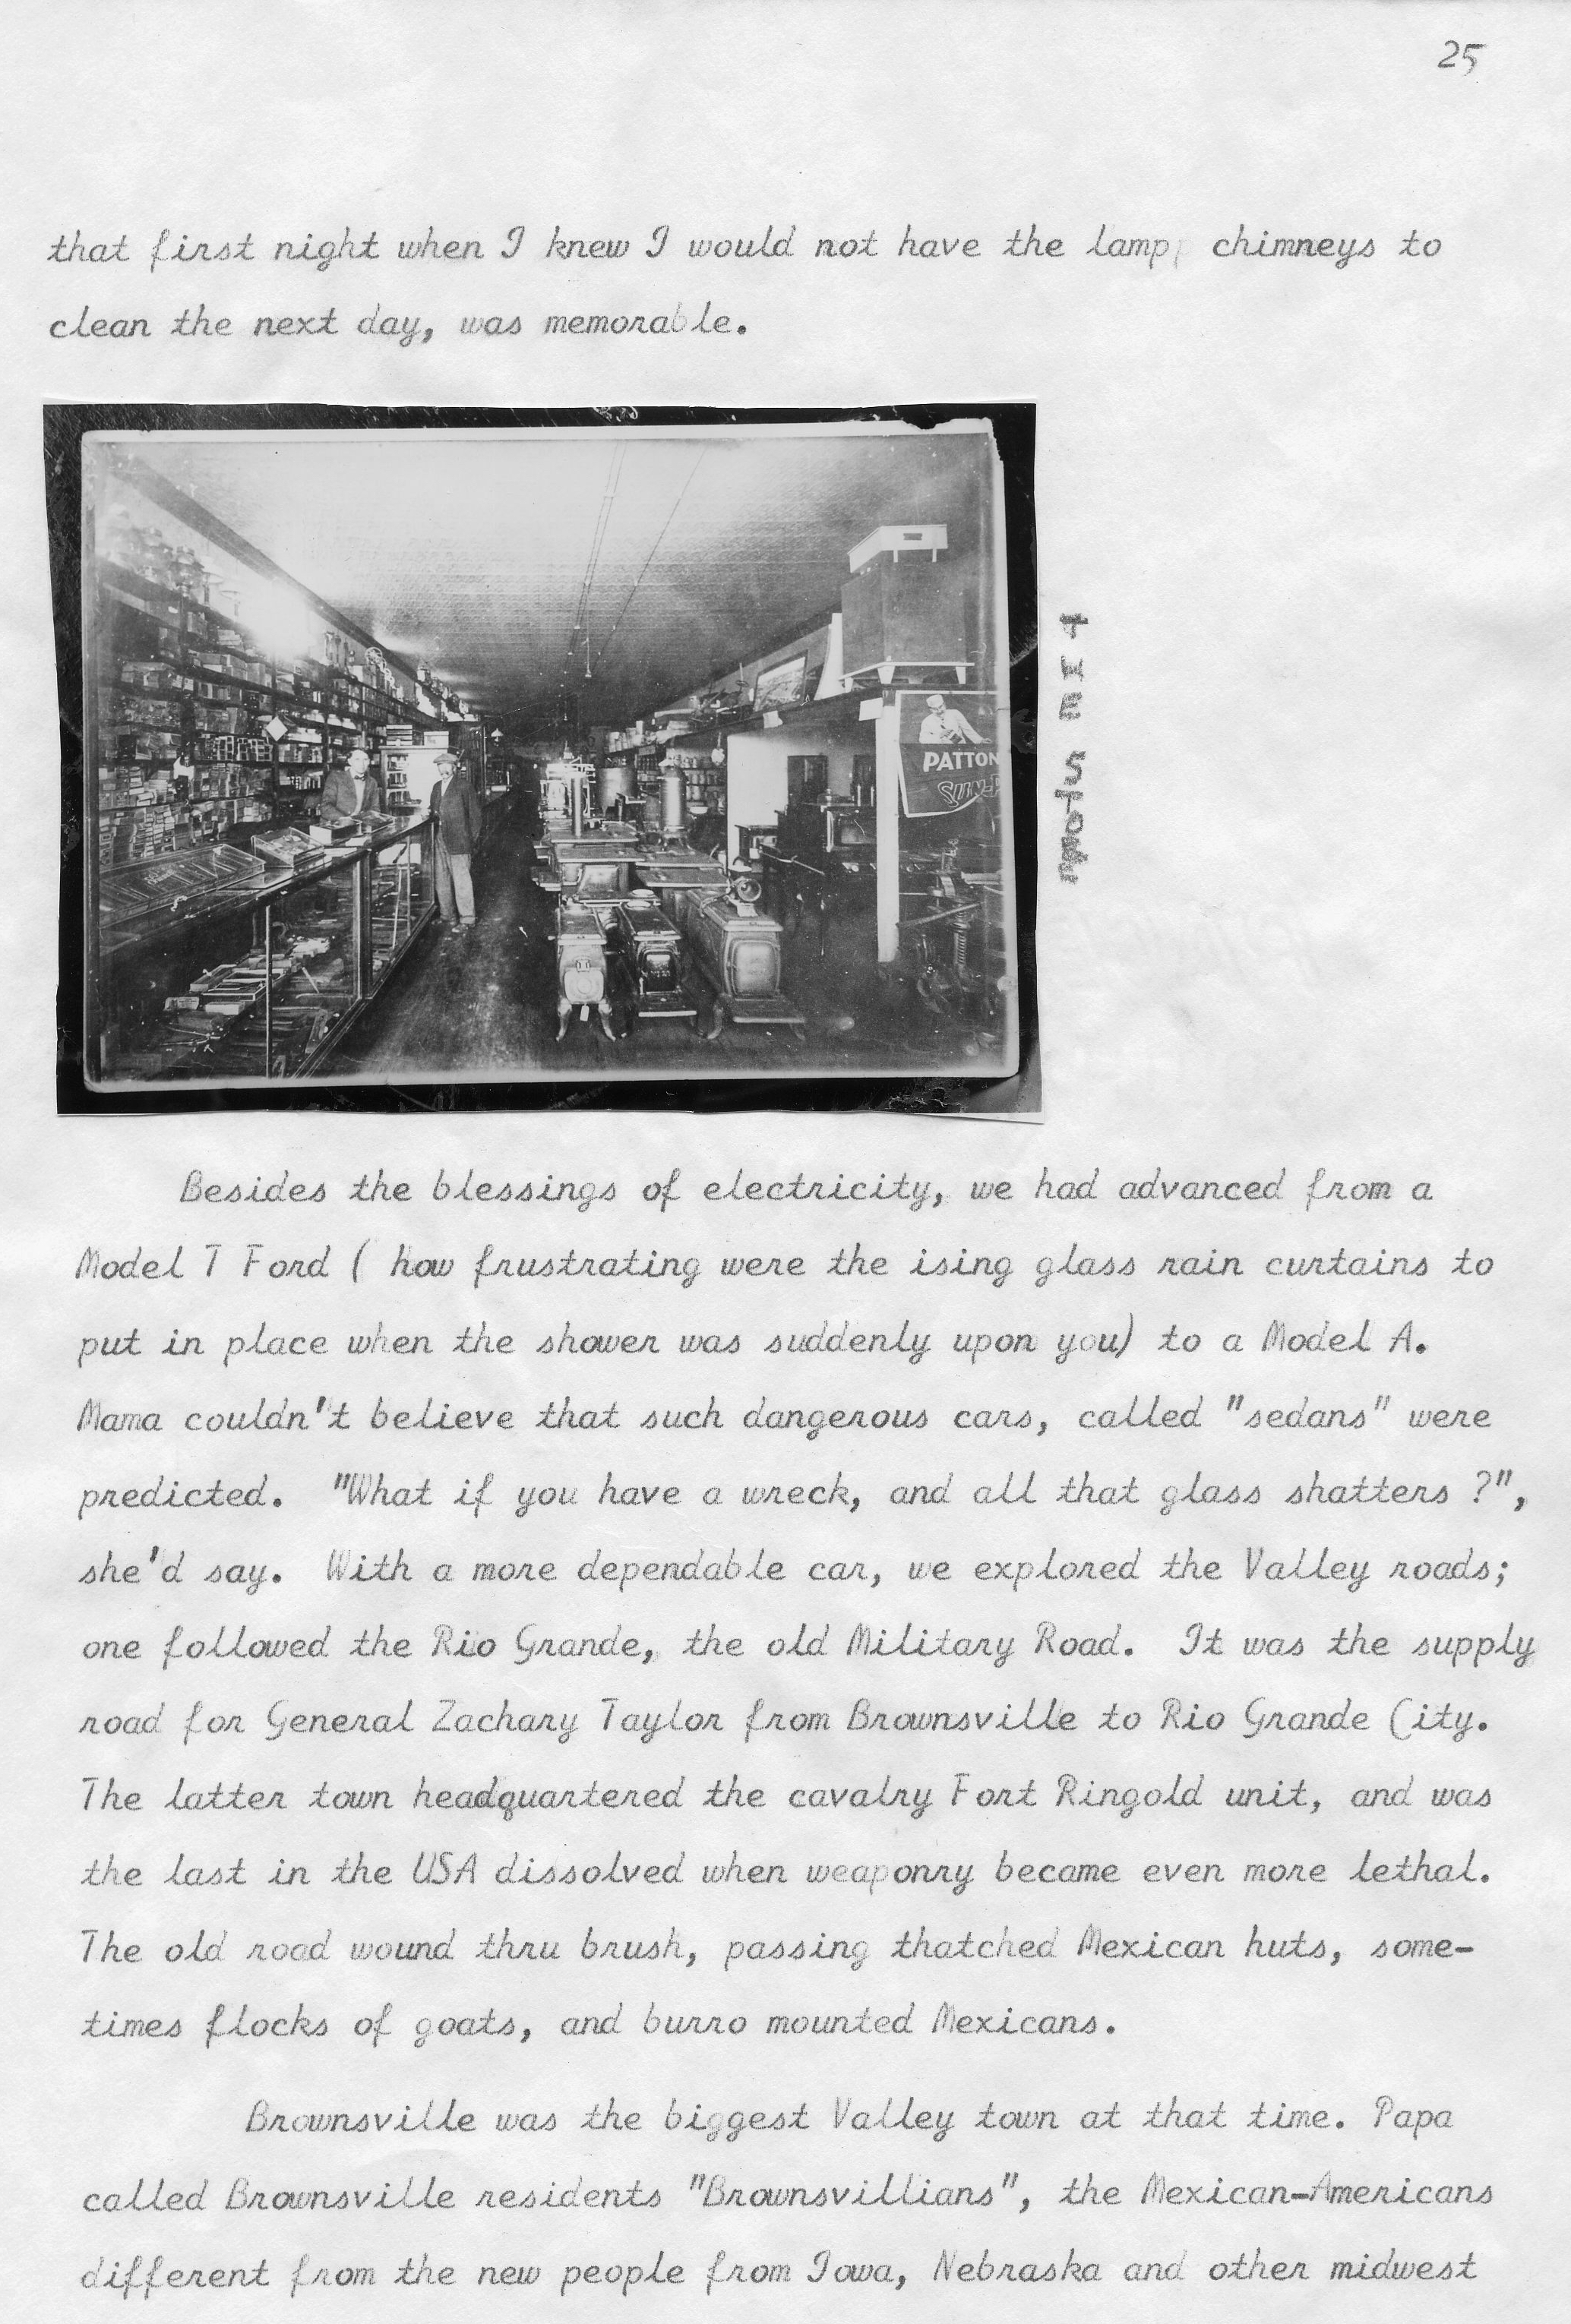 25
that first night when I knew I would not have the lamp chimneys to
clean the next day, was memorable.
PATTON
SUN-P
THE STORE
Besides the blessings of electricity, we had advanced from a
Model T Ford ( how frustrating were the ising glass rain curtains to
put in place when the shower was suddenly upon you) to a Model A.
Mama couldn't believe that such dangerous cars, called "sedans" were
predicted. "What if you have a wreck, and all that glass shatters ?",
she'd say. With a more dependable car, we explored the Valley roads;
one followed the Rio Grande, the old Military Road. It was the supply
road for General Zachary Taylor from Brownsville to Rio Grande City.
The latter town headquartered the cavalry Fort Ringold unit, and was
the last in the USA dissolved when weaponry became even more lethal.
The old road wound thru brush, passing thatched Mexican huts, some-
times flocks of goats, and burro mounted Mexicans.
Brownsville was the biggest Valley town at that time. Papa
called Brownsville residents "Brownsvillians", the Mexican-Americans
different from the new people from Iowa, Nebraska and other midwest